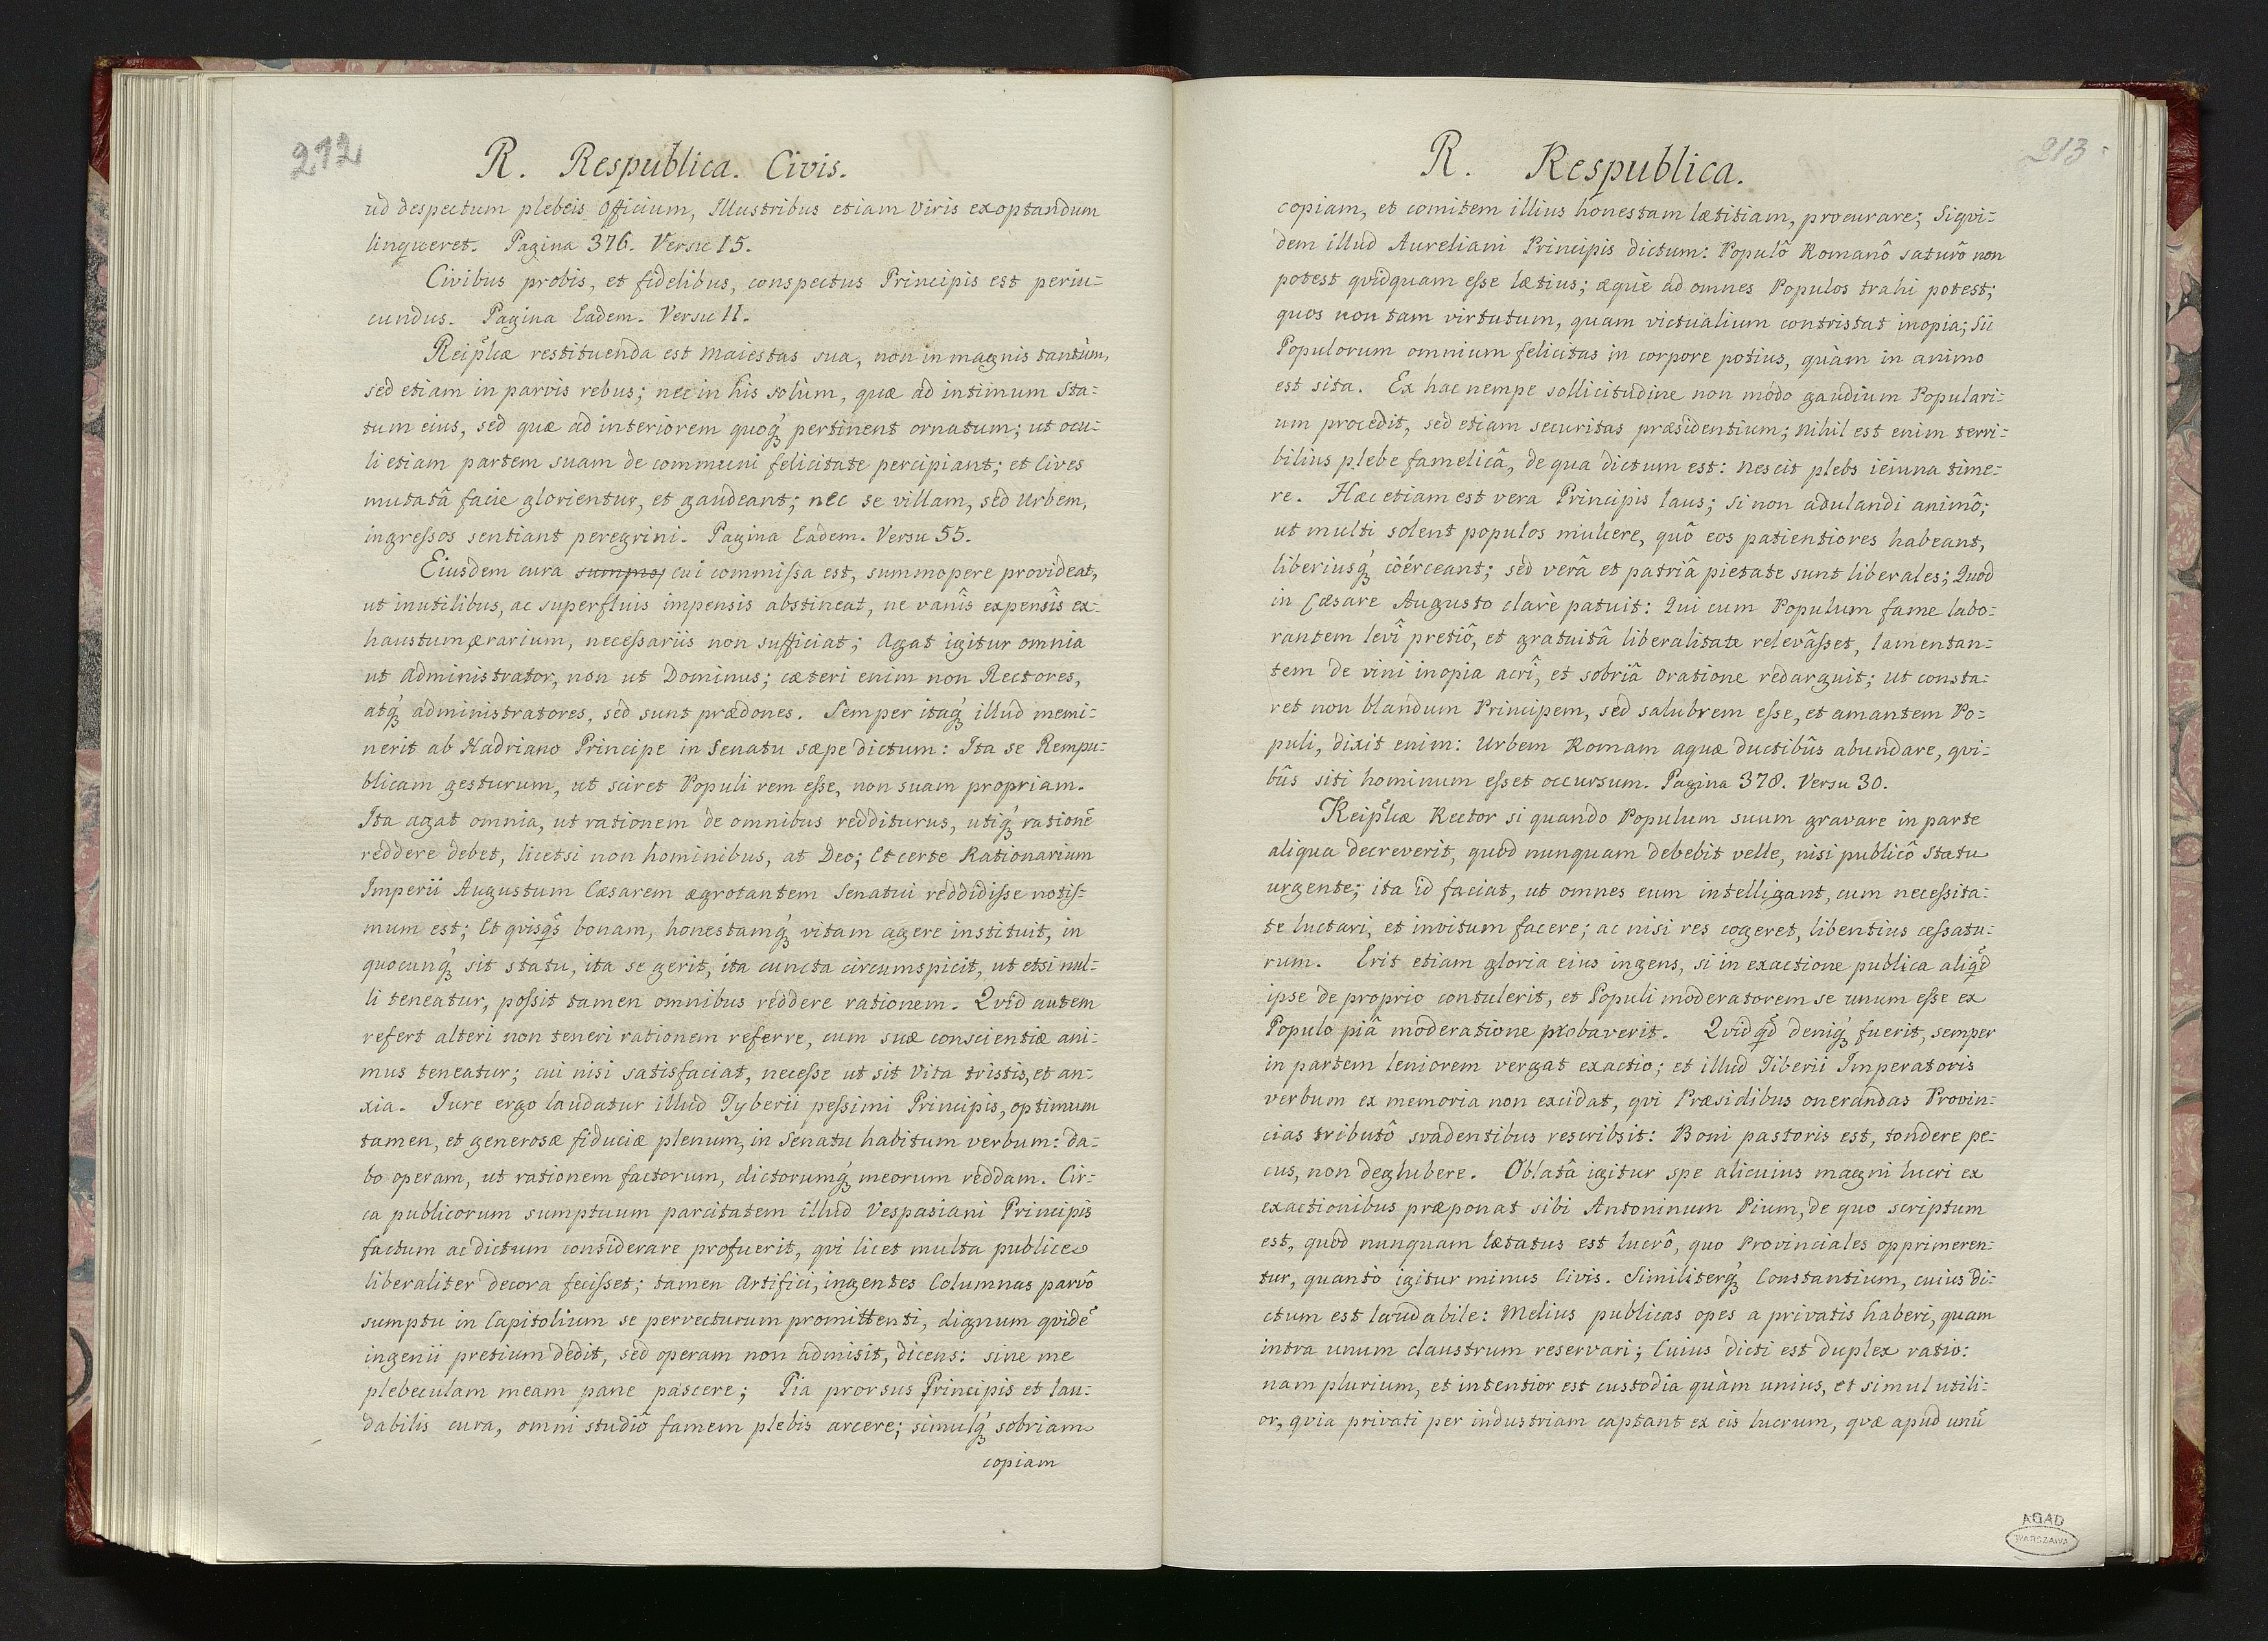 212
R. Respublica. Civis.
ud despectum plebeis Officium, Illustribus etiam Viris exoptandum
linqueret. Pagina 376. Versu 15.
Civibus probis, et fidelibus, conspectus Principis est periu=
cundus. Pagina Eadem. Versu 11.
Reip͠licæ restituenda est Maiestas sua, non in magnis tantùm,
sed etiam in parvis rebus; nec in his solùm, quæ ad intimum Sta=
tum eius, sed quæ ad interiorem quoq́ꝫ pertinent ornatum; ut ocu=
li etiam partem suam de communi felicitate percipiant; et Cives
mutatâ facie glorientur, et gaudeant; nec se villam, sed Urbem,
ingreſsos sentiant peregrini. Pagina Eadem. Versu 55.
Eiusdem cura cui commiſsa est, summopere provideat,
ut inutilibus, ac superfluis impensis abstineat, ne vanîs expensîs ex=
haustum ærarium, neceſsariis non sufficiat; Agat igitur omnia
ut Administrator, non ut Dominus; cæteri enim non Rectores,
atq́ꝫ administratores, sed sunt prædones. Semper itaq́ꝫ illud memi=
nerit ab Hadriano Principe in Senatu sæpe dictum: Ita se Rempu=
blicam gesturum, ut sciret Populi rem eſse, non suam propriam.
Ita agat omnia, ut rationem de omnibus redditurus, utiq́ꝫ rationẽ
reddere debet, licetsi non hominibus, at Deo; Et certe Rationarium
Imperii Augustum Cæsarem ægrotantem Senatui reddidiſse notiſ=
mum est; Et qvisq̃s bonam, honestamq́ꝫ vitam agere instituit, in
quocunq́ꝫ sit statu, ita se gerit, ita cuncta circumspicit, ut etsi nul=
li teneatur, poſsit tamen omnibus reddere rationem. Qvid autem
refert alteri non teneri rationem referre, cum suæ conscientiæ ani=
mus teneatur; cui nisi satisfaciat, neceſse ut sit Vita tristis, et an=
xia. Iure ergo laudatur illud Tyberii peſsimi Principis, optimum
tamen, et generosæ fiduciæ plenum, in Senatu habitum verbum: da=
bo operam, ut rationem factorum, dictorumq́ꝫ meorum reddam. Cir=
ca publicorum sumptuum parcitatem illud Vespasiani Principis
factum ac dictum considerare profuerit, qvi licet multa publice
liberaliter decora feciſset; tamen Artifici, ingentes Columnas parvô
sumptu in Capitolium se pervecturum promittenti, dignum qvidẽ
ingenii pretium dedit, sed operam non admisit, dicens: sine me
plebeculam meam pane pascere; Pia prorsus Principis et lau=
dabilis cura, omni studiô famem plebis arcere; simulq́ꝫ sobriam
copiam
213
R. Respublica.
copiam, et comitem illius honestam lætitiam, procurare; Siqvi=
dem illud Aureliani Principis dictum: Populô Romanô saturô non
potest qvidquam eſse lætius; æquè ad omnes Populos trahi potest;
quos non tam virtutum, quam victualium contristat inopia; Sii
Populorum omnium felicitas in corpore potius, quàm in animo
est sita. Ex hac nempe sollicitudine non modo gaudium Populari=
um procedit, sed etiam securitas præsidentium; Nihil est enim terri=
bilius plebe famelicâ, de qua dictum est: Nescit plebs ieiuna time=
re. Hæc etiam est vera Principis laus; si non adulandi animô;
ut multi solent populos mulcere, quô eos patientiores habeant,
liberiusq́ꝫ cöérceant; sed verâ et patriâ pietate sunt liberales; Quod
in Cæsare Augusto clarè patuit: Qui cum Populum fame labo=
rantem levî pretiô, et gratuitâ liberalitate relevâſset, lamentan=
tem de vini inopia acrî, et sobriâ oratione redarguit; ut consta=
ret non blandum Principem, sed salubrem eſse, et amantem Po=
puli, dixit enim: Urbem Romam aquæ ductibûs abundare, qvi=
bûs siti hominum eſset occursum. Pagina 378. Versu 30.
Reip͠licæ Rector si quando Populum suum gravare in parte
aliqua decreverit, quod nunquam debebit velle, nisi publicô statu
urgente; ita id faciat, ut omnes eum intelligant, cum neceſsita=
te luctari, et invitum facere; ac nisi res cogeret, libentius ceſsatu=
rum. Erit etiam gloria eius ingens, si in exactione publica aliq̃d
ipse de proprio contulerit, et Populi moderatorem se unum eſse ex
Populo piâ moderatione probaverit. Qvidq̃d deniq́ꝫ fuerit, semper
in partem leniorem vergat exactio; et illud Tiberii Imperatoris
verbum ex memoria non excidat, qvi Præsidibus onerandas Provin=
cias tributô svadentibus rescribsit: Boni pastoris est, tondere pe=
cus, non deglubere. Oblatâ igitur spe alicuius magni lucri ex
exactionibus præponat sibi Antoninum Pium, de quo scriptum
est, quod nunquam lætatus est lucrô, quo Provinciales opprimeren=
tur, quantò igitur minus Civis. Similiterq́ꝫ Constantium, cuius di=
ctum est laudabile: Melius publicas opes a privatis haberi, quam
intra unum claustrum reservari; Cuius dicti est duplex ratio:
nam plurium, et intentior est custodia quàm unius, et simul utili=
or, qvia privati per industriam captant ex eis lucrum, qvæ apud unũ
AGAD
WARSZAWA